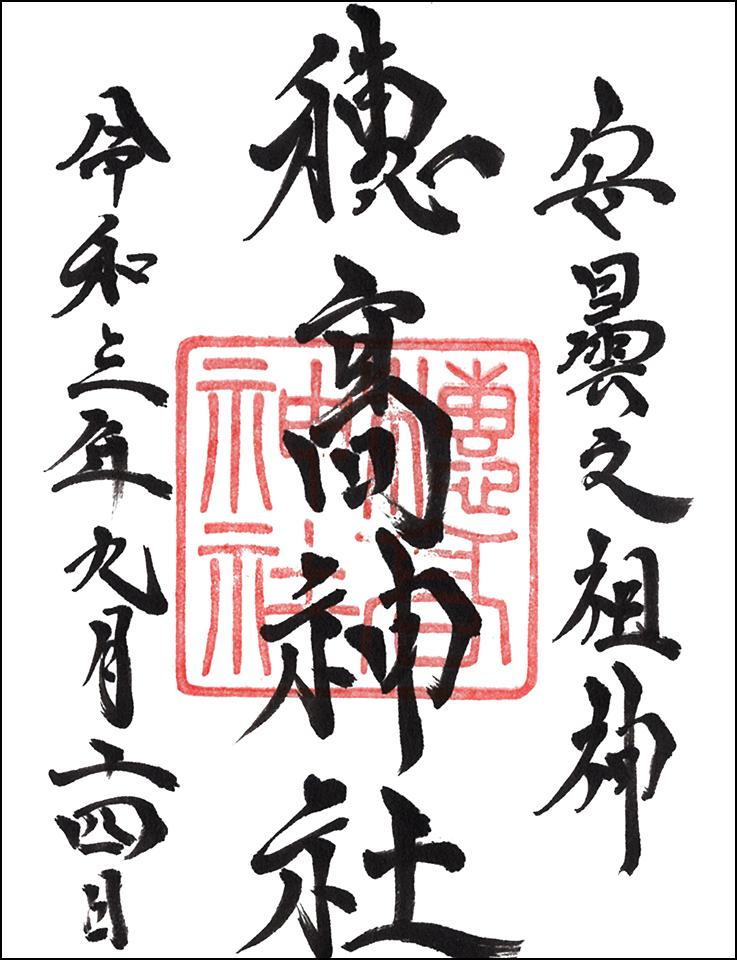 安曇之祖神
穂高神社
令和三年九月二四日
穂高
神社